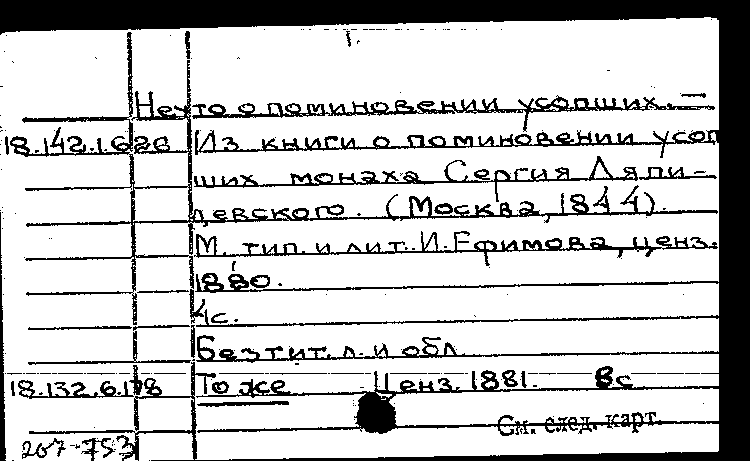 1.
Нечто о поминовении усопших. —
18.142.1.626 Из книги о поминовении усоп
ших монаха Сергия Ляпи-
девского. (Москва, 1844).
М. тип. и лит. И. Ефимова, ценз.
1880.
4с.
Без тит. л. и обл.
18.132.6.178 То же Ценз. 1881. 8с
См. след. карт.
207-753